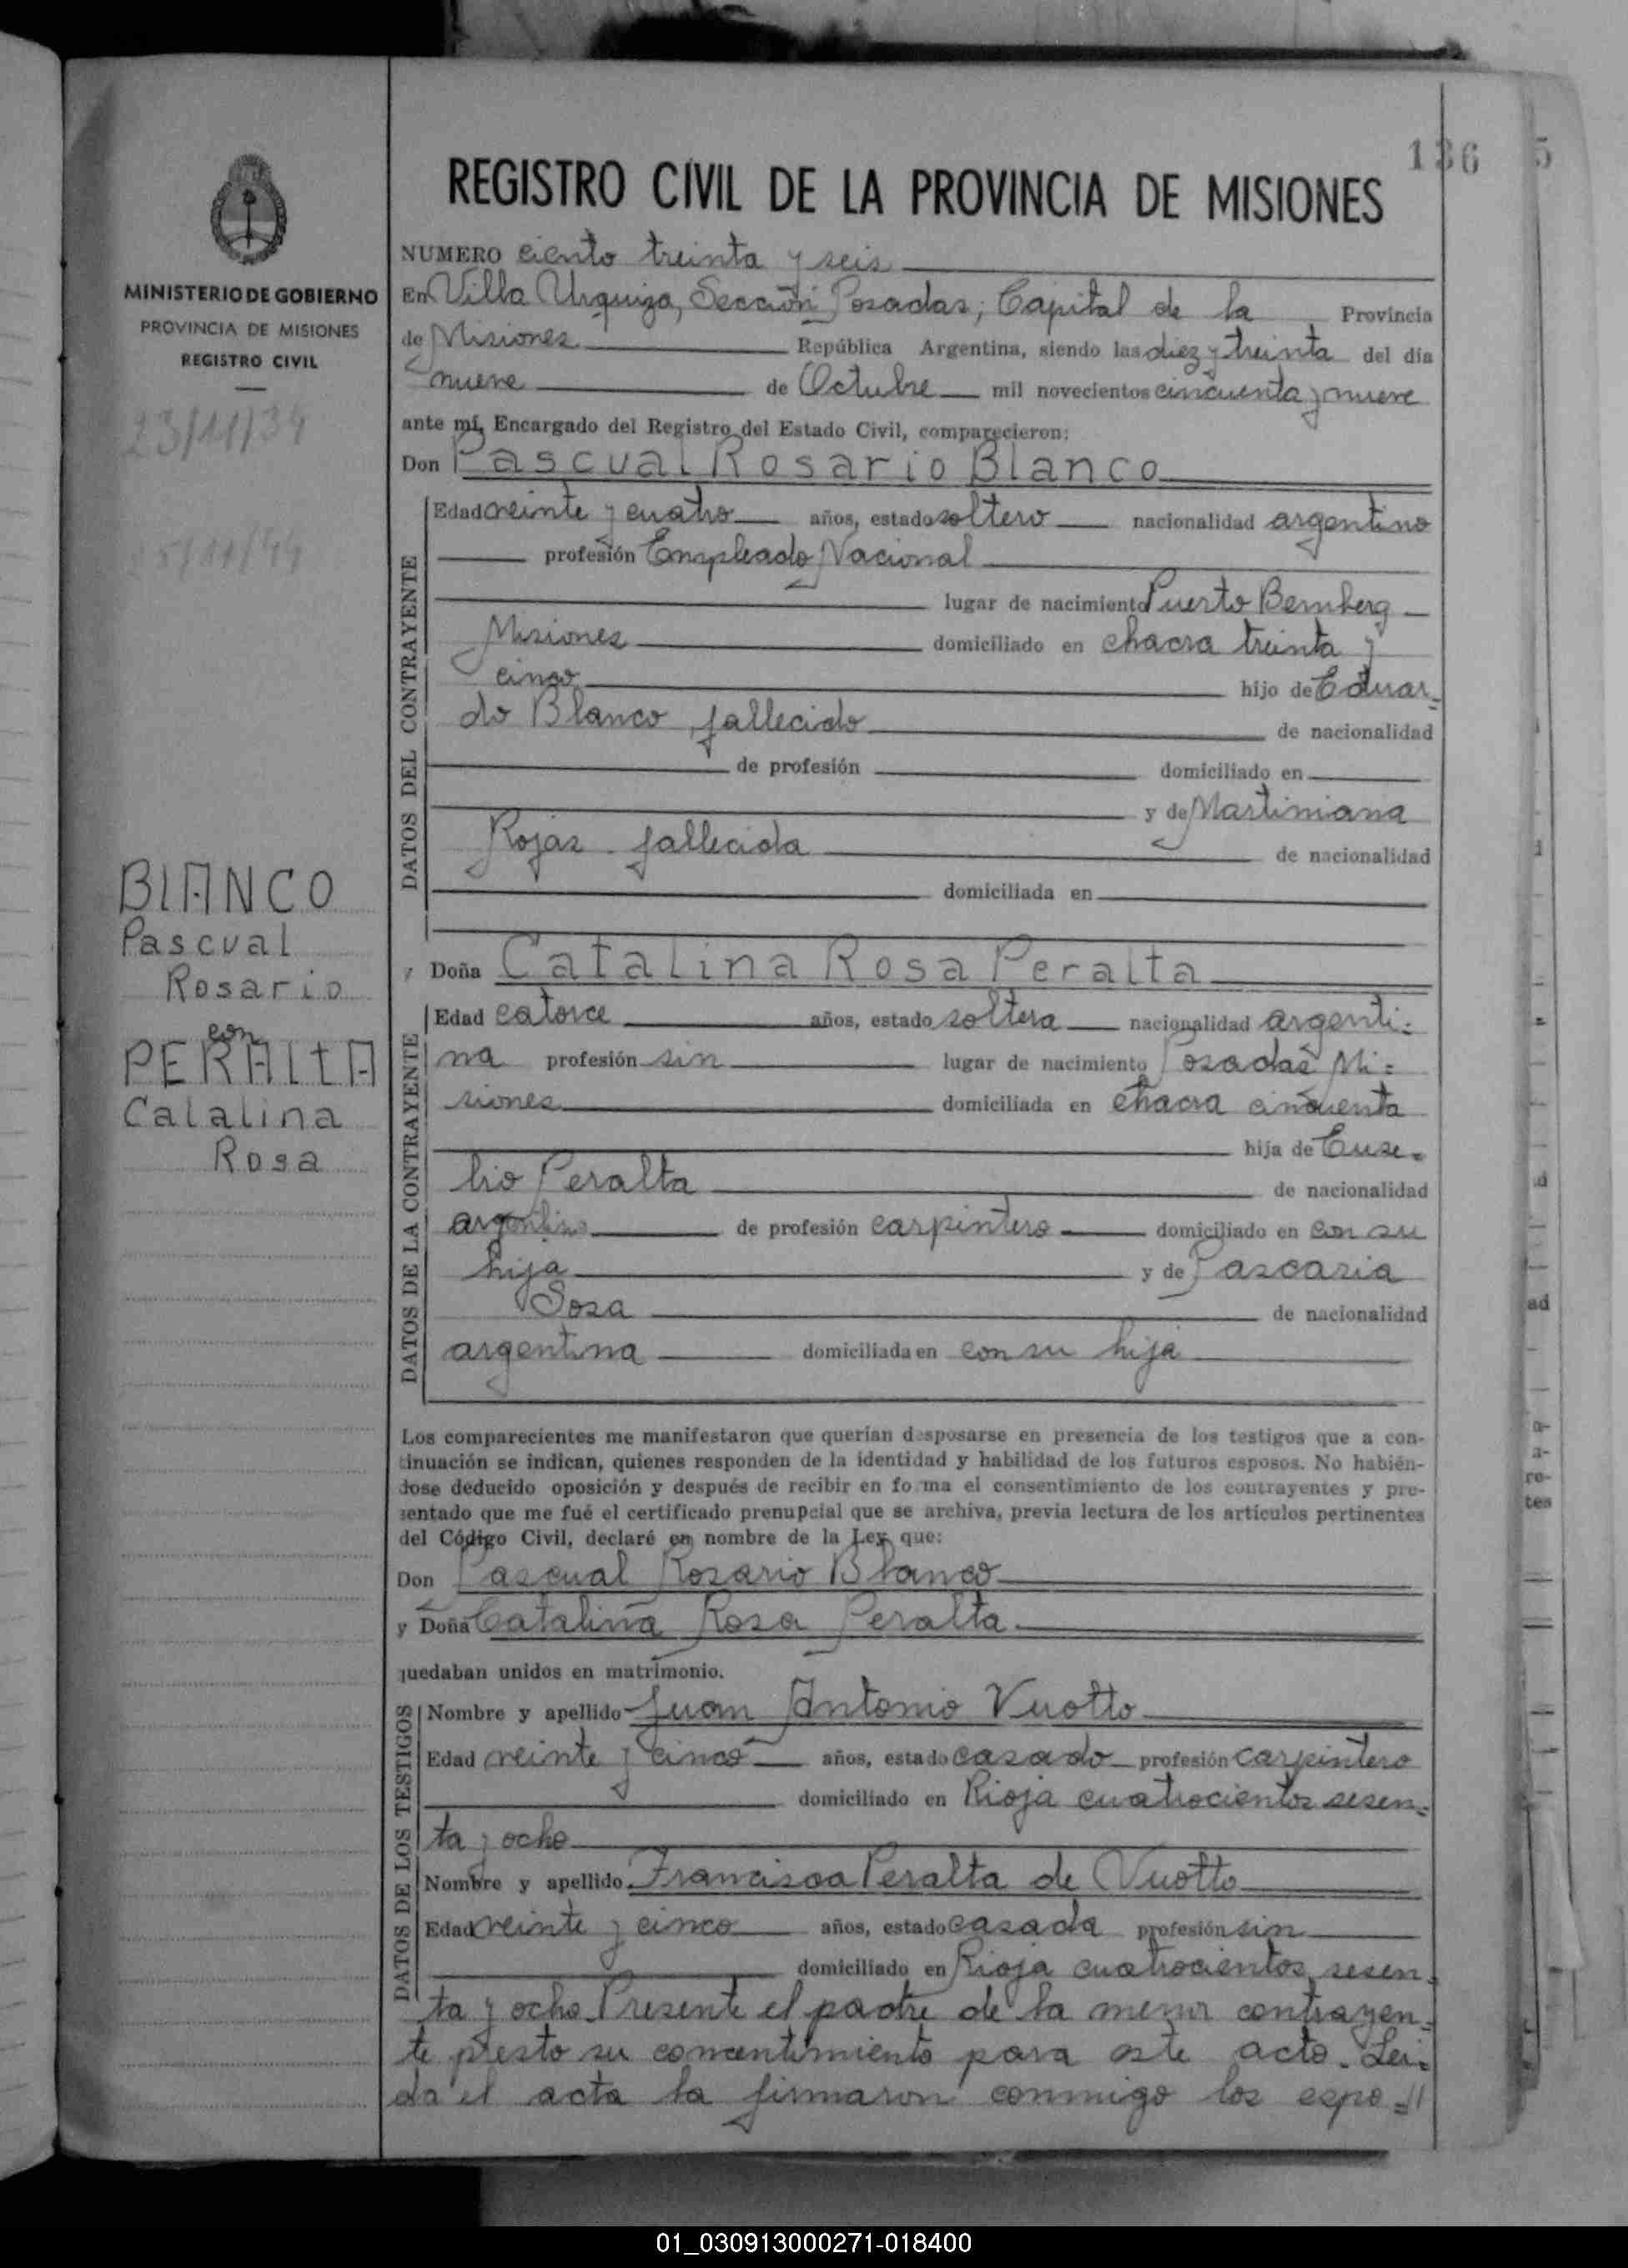 136 5
REGISTRO CIVIL DE LA PROVINCIA DE MISIONES
MINISTERIO DE GOBIERNO
PROVINCIA DE MISIONES
REGISTRO CIVIL
23/11/34
5/11/44
BLANCO
Pascual
Rosario
con
PERALTA
Catalina
Rosa
NUMERO ciento treinta y seis
En Villa Urquiza, Sección Posadas; Capital de la Provincia
de Misiones República Argentina, siendo las diez y treinta del día
nueve de Octubre mil novecientos cincuenta y nueve
ante mí, Encargado del Registro del Estado Civil, comparecieron:
Don Pascual Rosario Blanco
DATOS DEL CONTRAYENTE
Edad veinte y cuatro años, estado soltero nacionalidad argentino
profesión Empleado Nacional
lugar de nacimiento Puerto Bemberg
Misiones domiciliado en chacra treinta y
cinco hijo de Eduar=
do Blanco, fallecido de nacionalidad
de profesión domiciliado en
y de Martiniana
Rojas fallecida de nacionalidad
domiciliada en
y Doña Catalina Rosa Peralta
DATOS DE LA CONTRAYENTE
Edad catorce años, estado soltera nacionalidad argenti=
na profesión sin lugar de nacimiento Posadas Mi=
siones domiciliada en chacra cincuenta
hija de Euse=
bio Peralta de nacionalidad
argentino de profesión carpintero domiciliado en con su
hija y de Pascasia
Sosa de nacionalidad
argentina domiciliada en con su hija
Los comparecientes me manifestaron que querían desposarse en presencia de los testigos que a con-
tinuación se indican, quienes responden de la identidad y habilidad de los futuros esposos. No habién-
dose deducido oposición y después de recibir en forma el consentimiento de los contrayentes y pre-
sentado que me fué el certificado prenupcial que se archiva, previa lectura de los artículos pertinentes
del Código Civil, declaré en nombre de la Ley que:
Don Pascual Rosario Blanco
y Doña Catalina Rosa Peralta
quedaban unidos en matrimonio.
DATOS DE LOS TESTIGOS
Nombre y apellido Juan Antonio Vuotto
Edad veinte y cinco años, estado casado profesión carpintero
domiciliado en Rioja cuatrocientos sesen=
ta y ocho
Nombre y apellido Francisca Peralta de Vuotto
Edad veinte y cinco años, estado casada profesión sin
domiciliado en Rioja cuatrocientos sesen=
ta y ocho. Presente el padre de la menor contrayen=
te presto su concentimiento para este acto. Lei=
da el acta la firmaron conmigo los espo=//
ad
01_030913000271-018400